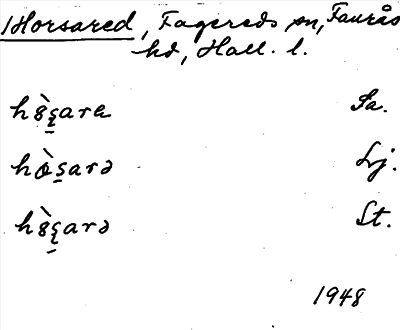 Horsared, Fagereds sn, Faurås
hd, Hall. l.
hòȣşarɐ Sa.
hòşarə Lj.
hȣ̀şarə St.
1948